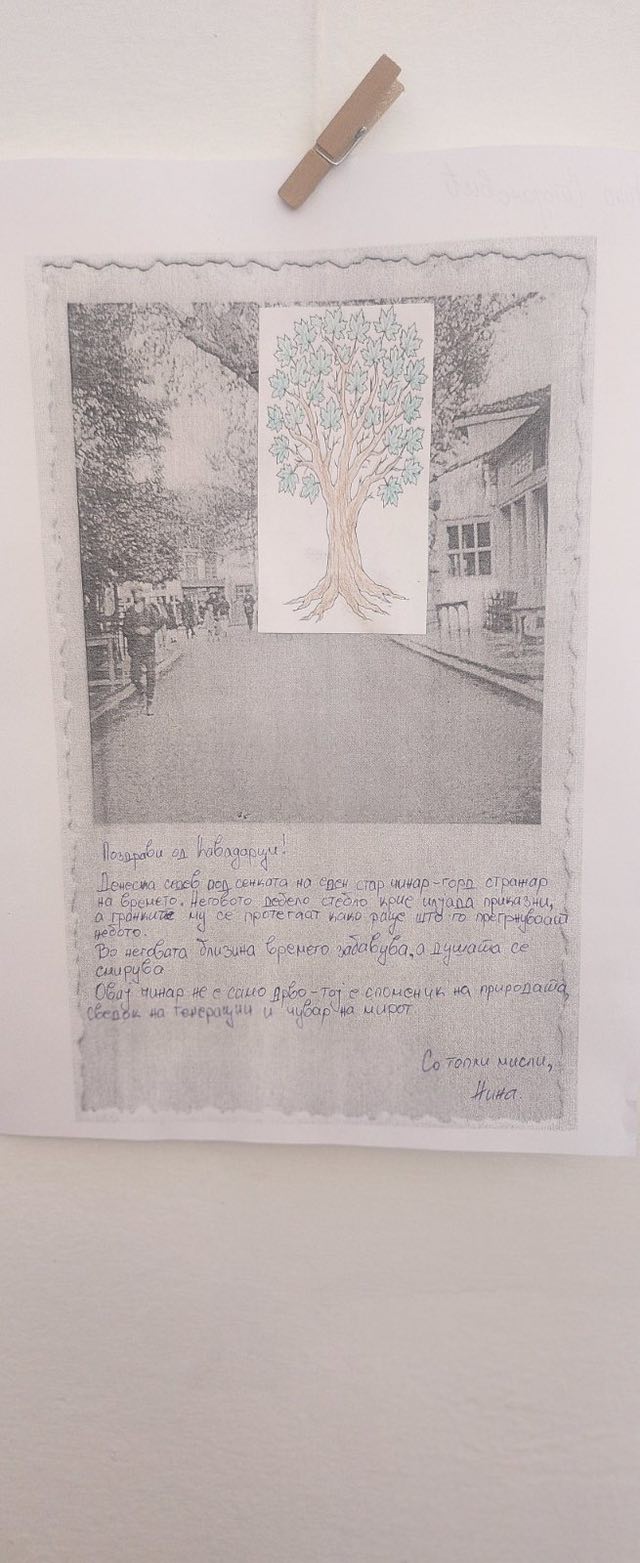 Поздрави од Кавадарци!
Денеска седев под сенката на еден стар чинар-горд стражар
на времето. Неговото дебело стебло крие илјада приказни,
а гранките му се протегаат како раце што го прегрнуваат
небото.
Во неговата близина времето забавува, а душата се
смирува
Овај чинар не е само дрво-тој е споменик на природата,
сведок на генерации и чувар на мирот
Со топли мисли,
Нина.